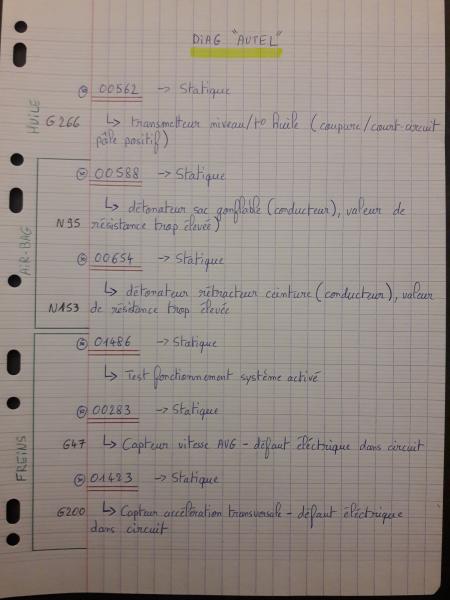 DIAG "AUTEL"
00562 -> Statique
HUILE
G266
↳ transmetteur niveau/t° huile (coupure/court-circuit
pôle positif)
00588 -> Statique
AIR-BAG
N95
↳ détonateur sac gonflable (conducteur), valeur de
résistance trop élevée)
00654 -> Statique
N153
↳ détonateur rétracteur ceinture (conducteur), valeur
de résistance trop élevée
01486 -> Statique
↳ Test fonctionnement système activé
FREINS
00283 -> Statique
G47
↳ Capteur vitesse AVG - défaut éléctrique dans circuit
01423 -> Statique
G200
↳ Capteur accélération transversale - défaut éléctrique
dans circuit